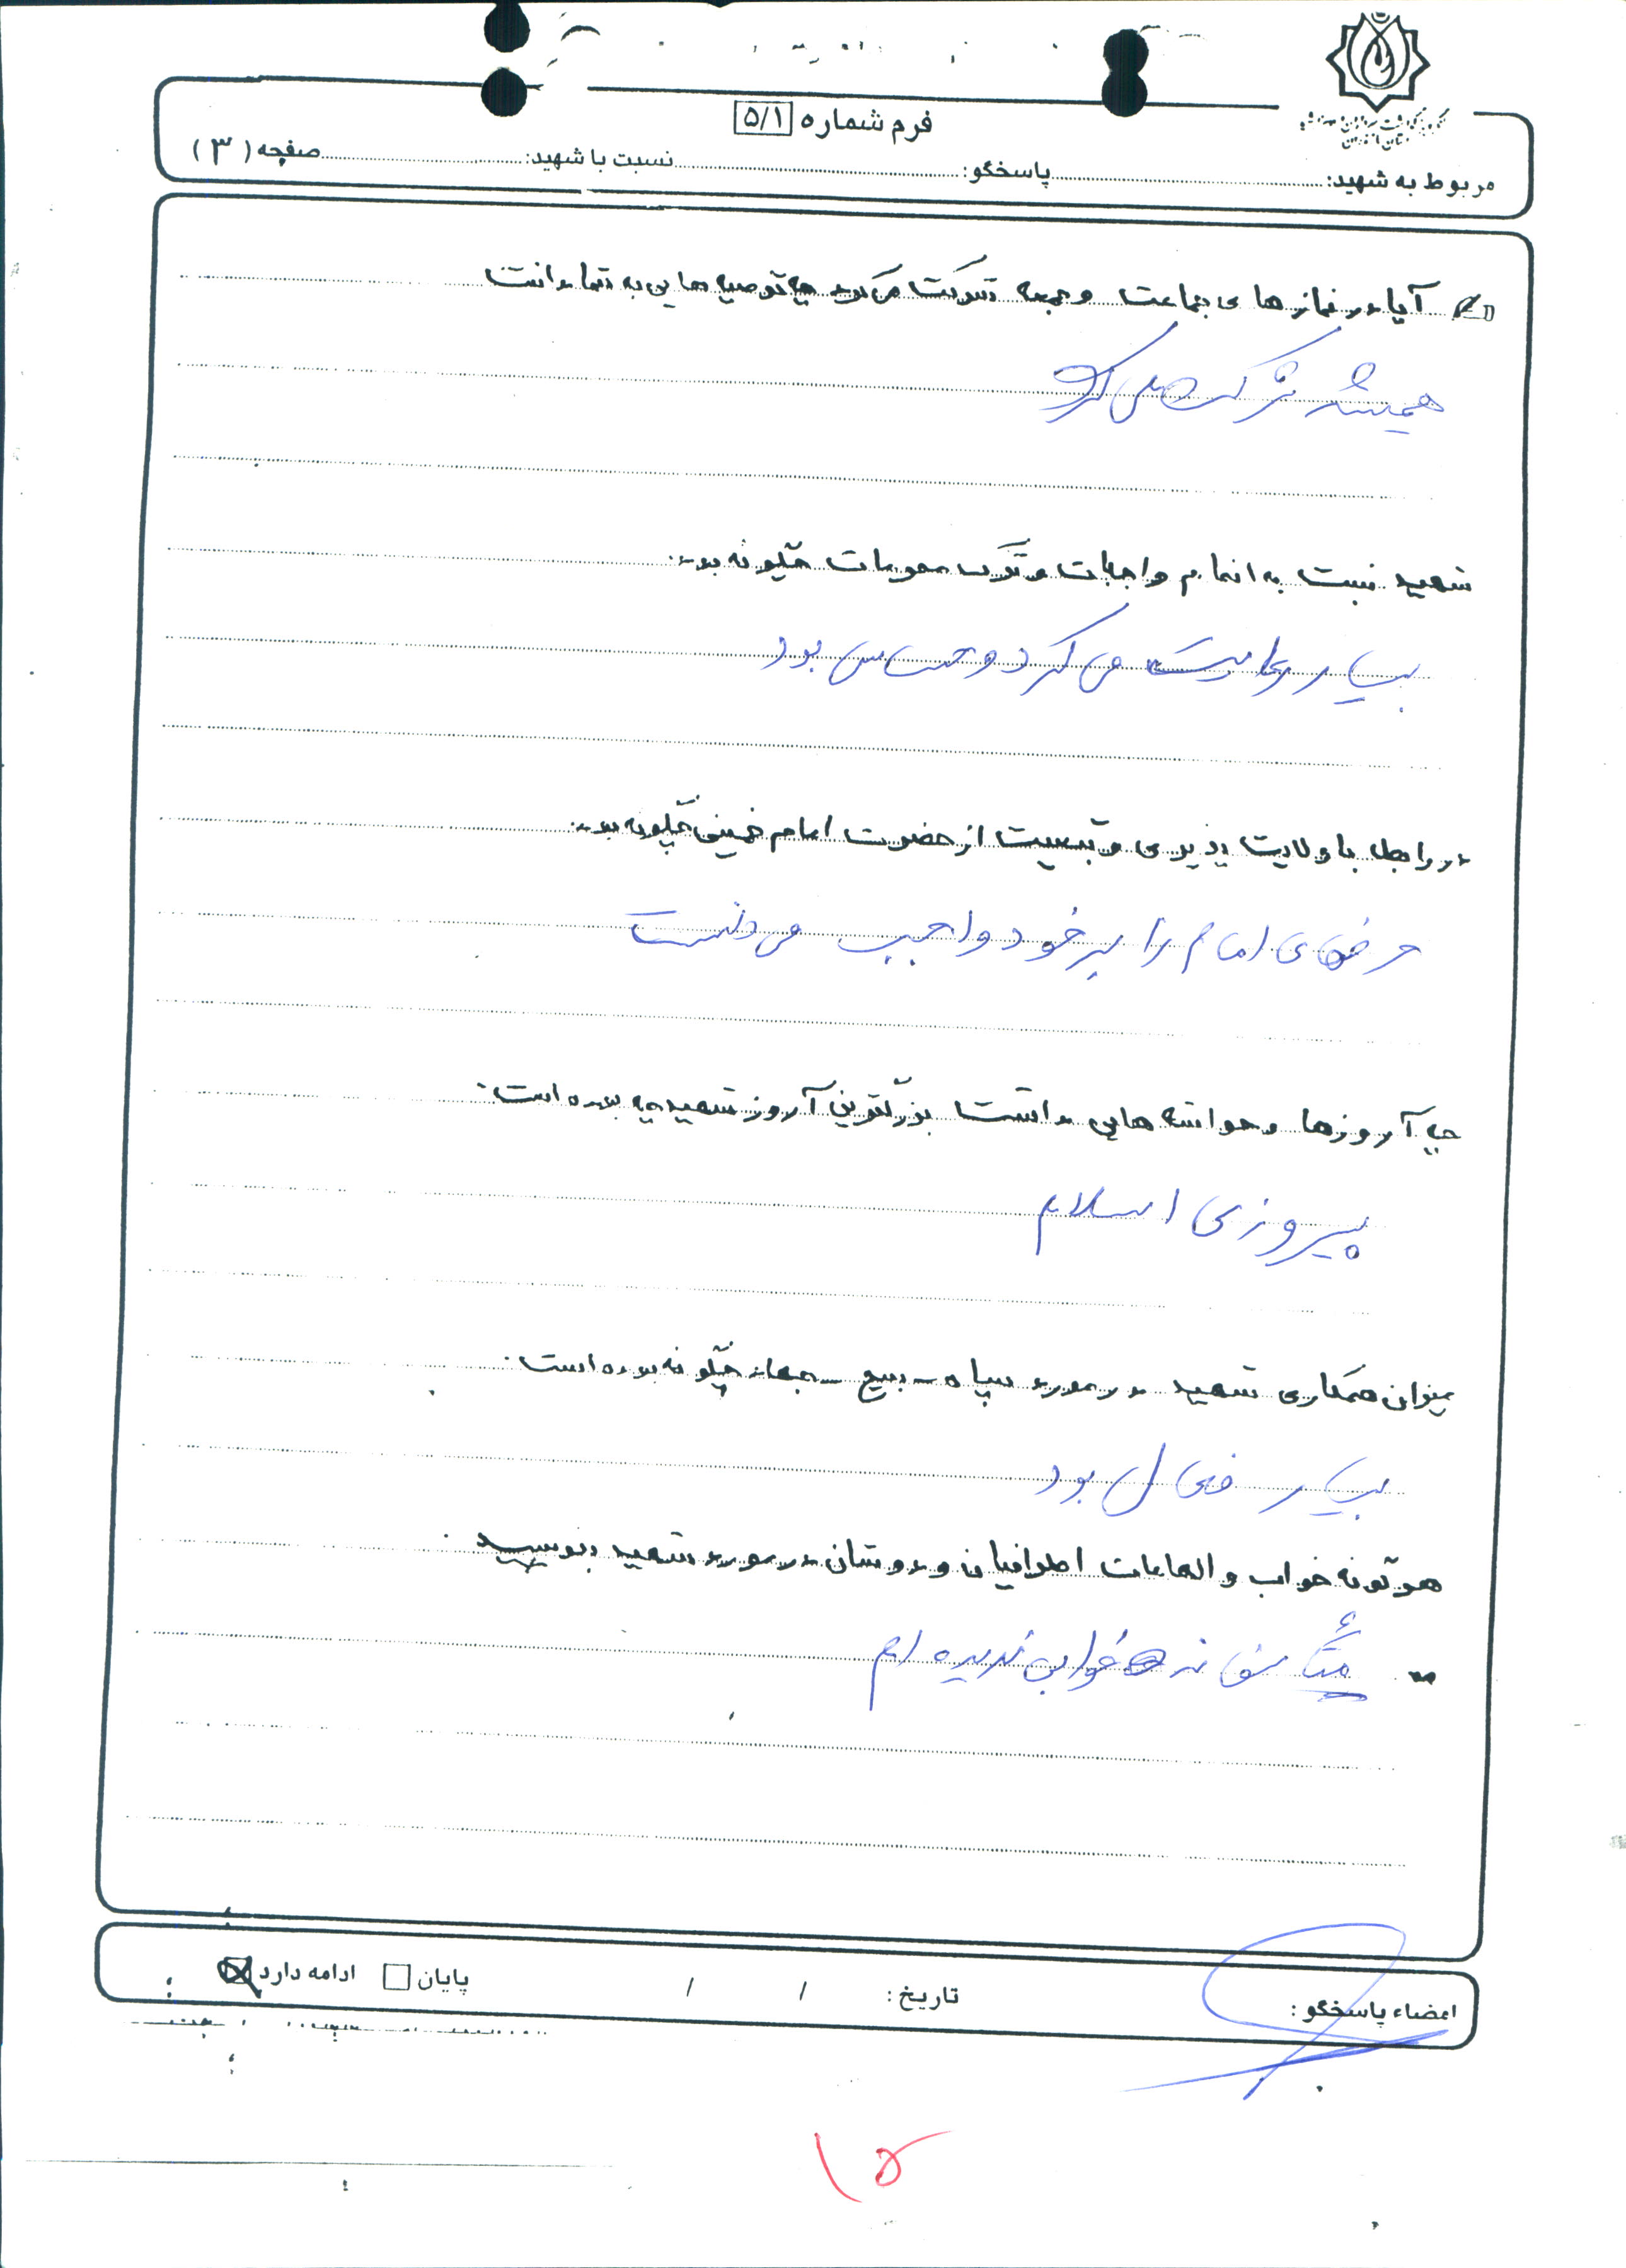 فرم شماره ۵/۱
مربوط به شهید: پاسخگو: نسبت با شهید: صفحه (۳)
آیا در نمازهای جماعت و جمعه شرکت می کرد چه توصیه هایی به شما داشت
همیشه شرکت می کرد
شهید نسبت به انجام واجبات و ترک محرمات چگونه بود.
بسیار رعایت می کرد و حساس بود
در رابطه با ولایت پذیری و تبعیت از حضرت امام خمینی چگونه بود.
حرفهای امام را بر خود واجب می دنست
چه آرزوها و خواسته هایی داشت بزرگترین آرزو شهید چه بوده است.
پیروزی اسلام
میزان همکاری شهید در مورد سپاه - بسیج - جهاد چگونه بوده است.
بسیار فعال بود
هر گونه خواب و الهامات اطرافیان و دوستان در مورد شهید بنویسید.
متأسفانه خواب ندیده ام
امضاء پاسخگو: تاریخ: / / پایان ادامه دارد
۱۵